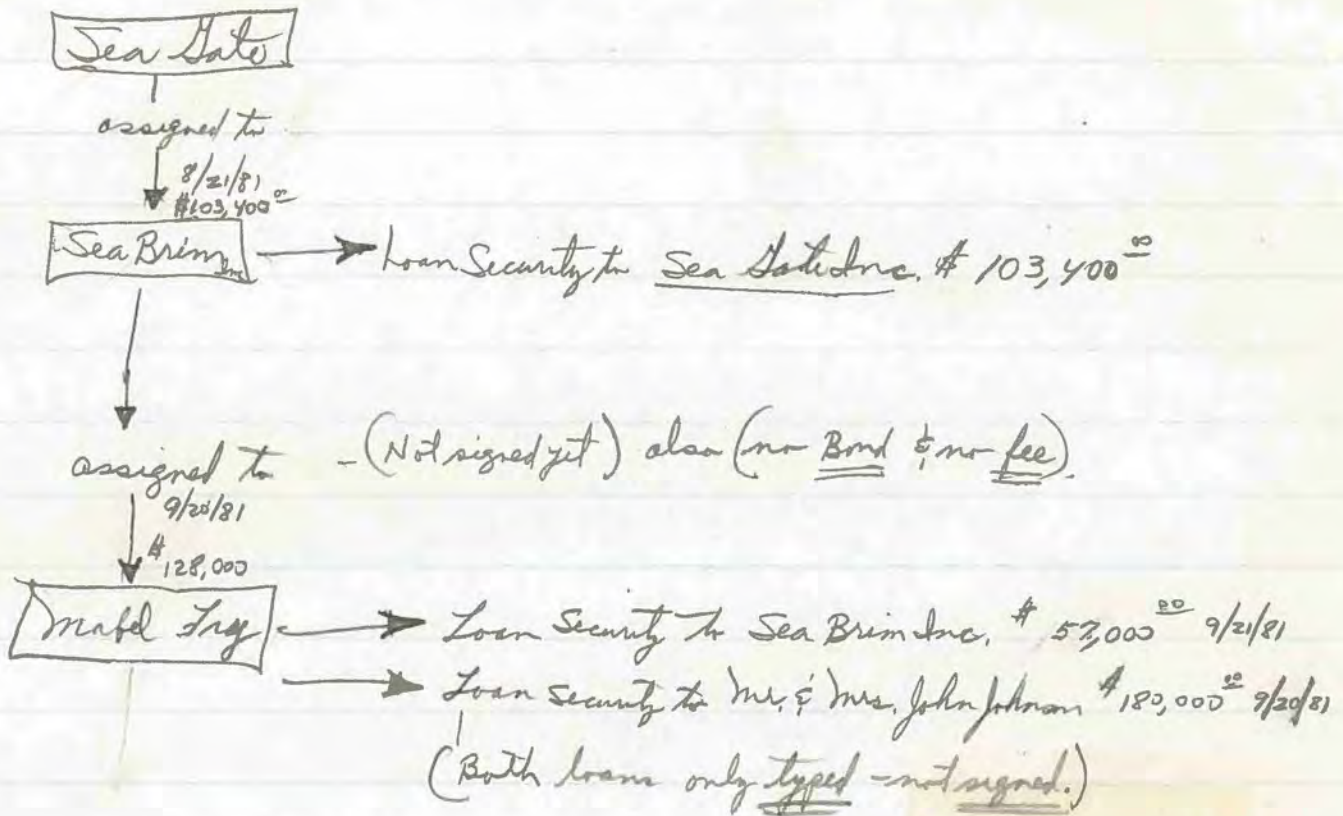 Sea Gate
assigned to
8/21/81
$103,400.00
Sea Brim Inc
Loan Security to Sea Gate Inc. $ 103,400.00
assigned to - (Not signed yet) also (no Bond & no fee).
9/20/81
$128,000
Loan Security to Sea Brim Inc. $ 57,000.00 9/21/81
Loan Security to Mr. & Mrs. John Johnson $180,000.00 9/20/81
(Both loans only typed - not signed.)